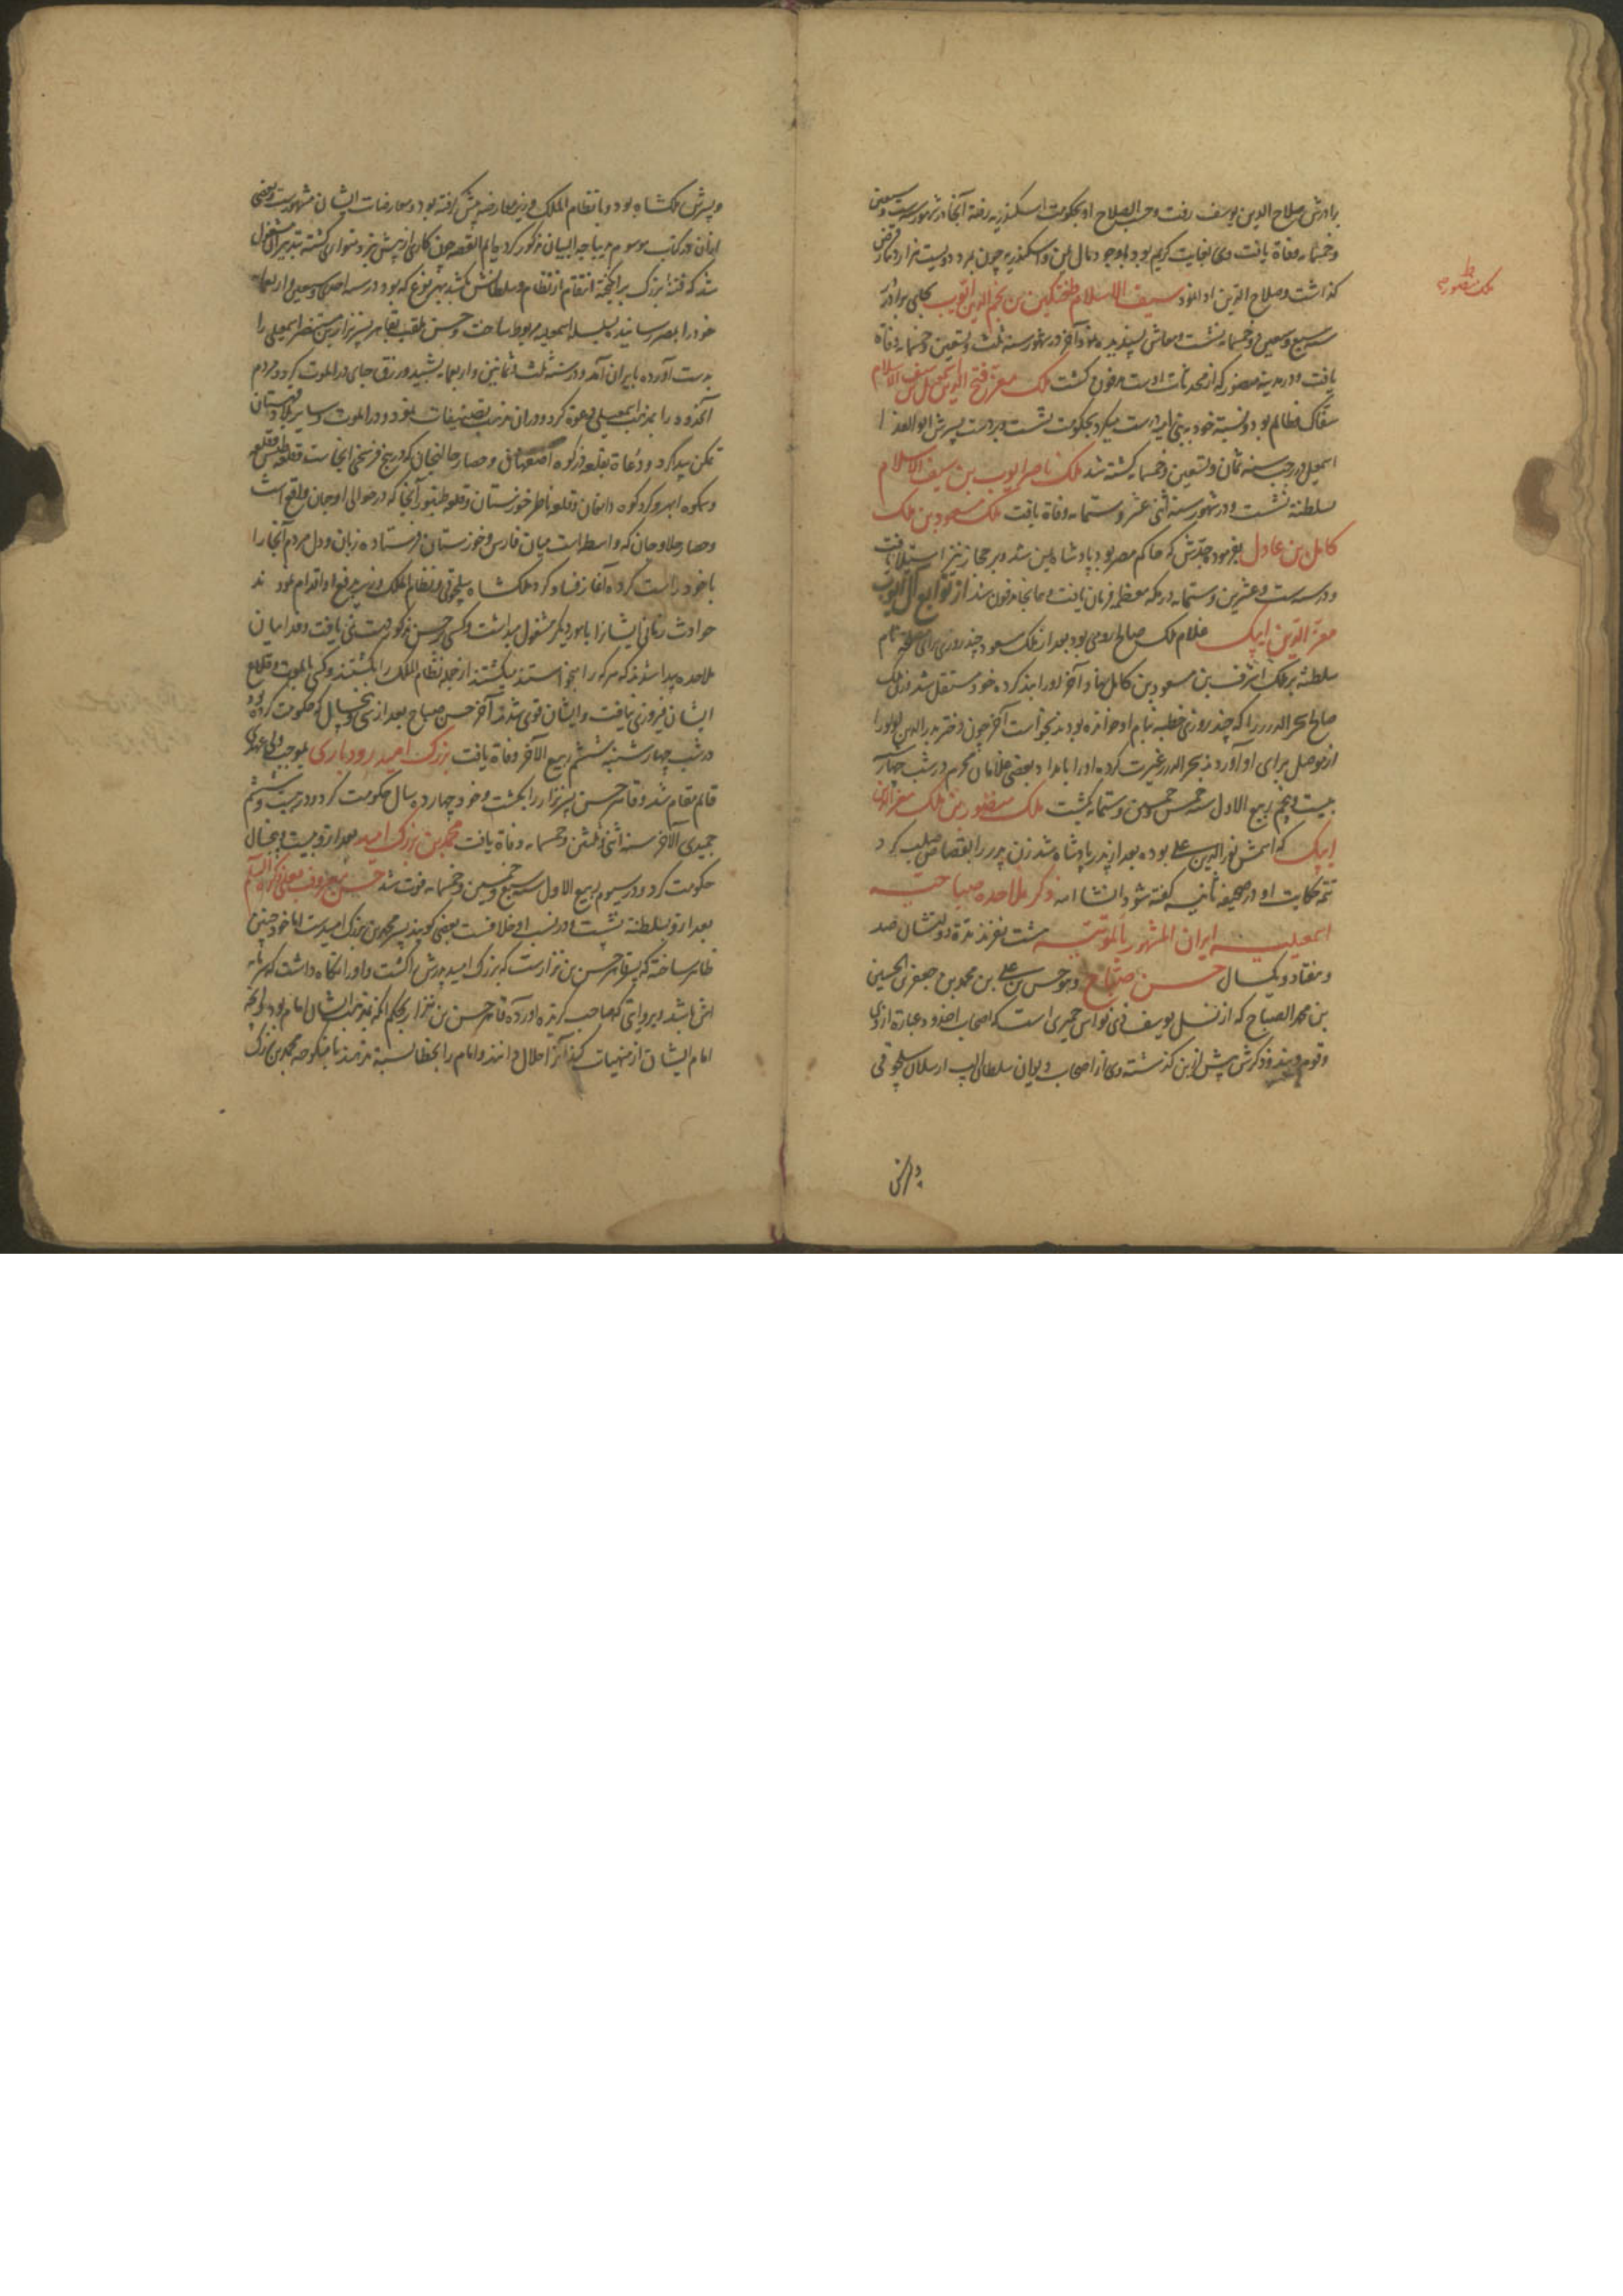 برادرش صلاح الدین یوسف رفت و حسب الصلاح او بحکومت اسکندریه رفته آنجا در شهور سنه ست و سبعین
و خمسمایه وفاة یافت وی بغایت کریم بود باوجود مال یمن و اسکندریه چون بمرد دویست هزار دینار قرض
گذاشت و صلاح الدین ادا نمود سیف الاسلام طغتکین بن نجم الدین ایوب بجای برادر در
سنه سبع و سبعین و خمسمایه نشست و معاش پسندیده نمود آخر در شهور سنه ثلث و تسعین و خمسمایه وفاة
یافت و در مدینه منصوره که از محدثات اوست مدفون گشت ملک معز فتح الدین اسمعیل بن سیف الاسلام
سفاک و ظالم بود و نسبة خود ببنی امیه درست میکرد بحکومت نشست و بر دست پسرش ابو الفدا
اسمعیل در رجب سنه ثمان و تسعین و خمسمایه کشته شد ملک ناصر ایوب بن سیف الاسلام
بسلطنة نشست و در شهور سنه اثنی عشر و ستمایه وفاة یافت ملک مسعود بن ملک
کامل بن عادل بفرمود جدش که حاکم مصر بود پادشاه یمن شد و بر حجاز نیز استیلا یافت
و در سنه ست و عشرین و ستمایه در مکه معظمه فرمان یافت و همانجا مدفون شد از توابع آل ایوب
معز الدین ایبک غلام ملک صالح ارومی بود بعد از ملک مسعود چند روزی برای مصلحة نام
سلطنة بر ملک اشرف بن مسعود بن کامل نهاد و آخر او را بند کرده خود مستقل شد زن ملک
صالح بحر الدرر را که چند روزی خطبه بنام او خوانده بودند بخواست آخر چون دختر بدر الدین لولو را
از موصل برای او آوردند بحر الدرر غیرت کرده او را با مداد بعضی غلامان محرم در شب چهارشنبه
بیست و پنجم ربیع الاول سنه خمس و خمسین و ستمایه بکشت ملک منصور بن ملک معز الدین
ایبک که اسمش نور الدین علی بوده بعد از پدر پادشاه شد زن پدر را بقصاص صلب کرد
تتمه حکایت او در صحیفه ثانیه گفته شود انشا الله ذکر ملاحده صباحیه
اسمعیلیه ایران المشهور بالموتیه هشت نفرند مدة دولتشان صد
و هفتاد و یکسال حسن صباح و هو حسن بن علی بن محمد بن جعفر بن الحسین
بن محمد الصباح که از نسل یوسف ذی نواس حمیری است که اصحاب اخدود عبارة از وی
و قوم ویند و ذکرش پیش ازین گذشته وی از اصحاب دیوان سلطان الپ ارسلان سلجوقی
و پسرش
ملک منصور
و پسرش ملکشاه بود و با نظام الملک وزیر معارضه پیش گرفته بود و معارضات ایشان مشهورست و بعضی
از آن در کتب موسوم بدیباجه البیان مذکور کرده‌ایم القصه چون کاری از پیش نبرد متواری گشته بتدبیر آن مشغول
شد که فتنه بزرگ برانگیخته انتقام از نظام و سلطانش بکشد بهر نوع که بود در سنه احدی و سبعین و اربعمایه
خود را بمصر رسانیده بسلسله اسمعیلیه مربوط ساخت و حسن ملقب بقاهر پسر نزار بن مستنصر اسمعیلی را
بدست آورده بایران آمد و در سنه ثلث و ثمانین و اربعمایه بشید و زرق جای در الموت کرد و مردم
آنحدود را بمذهب اسمعیلی دعوة کرد و در آن مذهب تصنیفات نمود و در الموت و سایر بلاد قهستان
تمکن پیدا کرد و دعاة بقلعه دزکوه اصفهان و حصار خالنجان که در پنج فرسخی آنجاست و قلعه طبس و قلعه
وسمکوه ابهر و کردکوه دامغان و قلعه ناظر خوزستان و قلعه طنبور آنجا که در حوالی ارجان واقع است
و حصار حلاوجان که واسطه است میان فارس و خوزستان فرستاده زبان و دل مردم آنجا را
با خود راست کرده آغاز فساد کرد ملکشاه سلجوقی و نظام الملک وزیر بدفع او اقدام نمودند
حوادث زمانی ایشان را بامور دیگر مشغول میداشت و کسی بر حسن مذکور دست نمی یافت و فداییان
ملاحده پیدا شدند که هرکه را میخواستند میکشتند از جمله نظام الملک را بکشتند و کسی بالموت و قلاع
ایشان فیروزی نیافت و ایشان قوی شدند آخر حسن صباح بعد از سی و پنج سال که حکومت کرده بود
در شب چهارشنبه ششم ربیع الآخر وفاة یافت بزرگ امید رودباری بموجب ولی عهدی
قایم مقام شد و قاهر حسن پسر نزار را بکشت و خود چهارده سال حکومت کرد و در بیست و ششم
جمیدی الآخر سنه اثنی و ثلثین و خمسمایه وفاة یافت محمد بن بزرگ امید بعد ازو بیست و پنجسال
حکومت کرد و در سیوم ربیع الاول سنه سبع و خمسین و خمسمایه فوت شد حسن معروف بعلی ذکره السلام
بعد ازو بسلطنة نشست و در نسب او خلافست بعضی گویند پسر محمد بن بزرگ امیدست اما خود چنین
ظاهر ساخته که پسر قاهر حسن بن نزارست که بزرگ امید پدرش را کشت و او را نگاه داشت که بر نامه
اش باشد و بروایتی که صاحب گزیده آورده قاهر حسن بن نزار بحکم آنکه نزد مذهب ایشان امام بود و آنچه
امام ایشان از منهیات کند آنرا حلال دانند و امام را بخطا نسبة ندهند با منکوحه محمد بن بزرگ